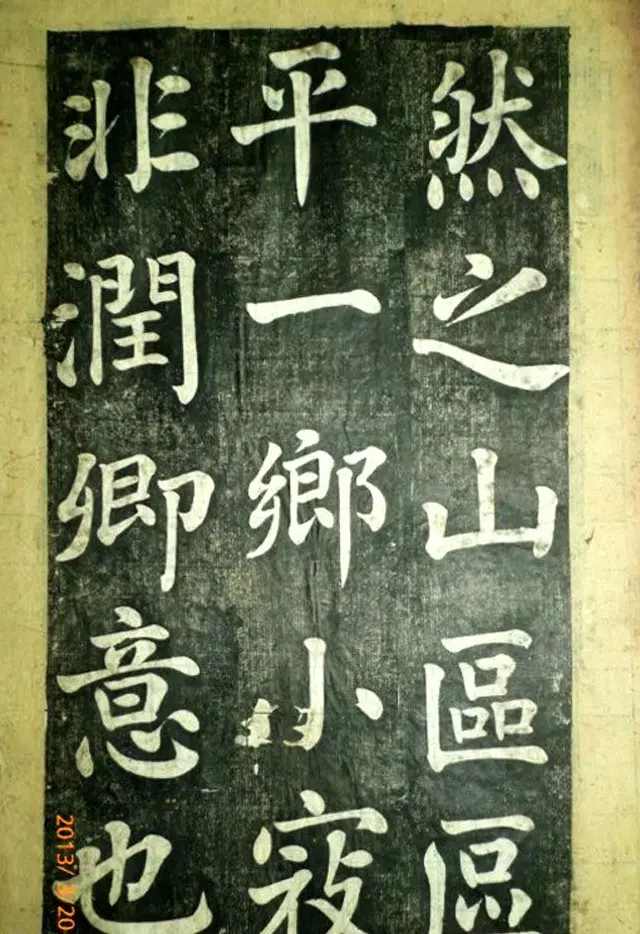 然之山區區
平一鄉小寇
非潤卿意也
2013/